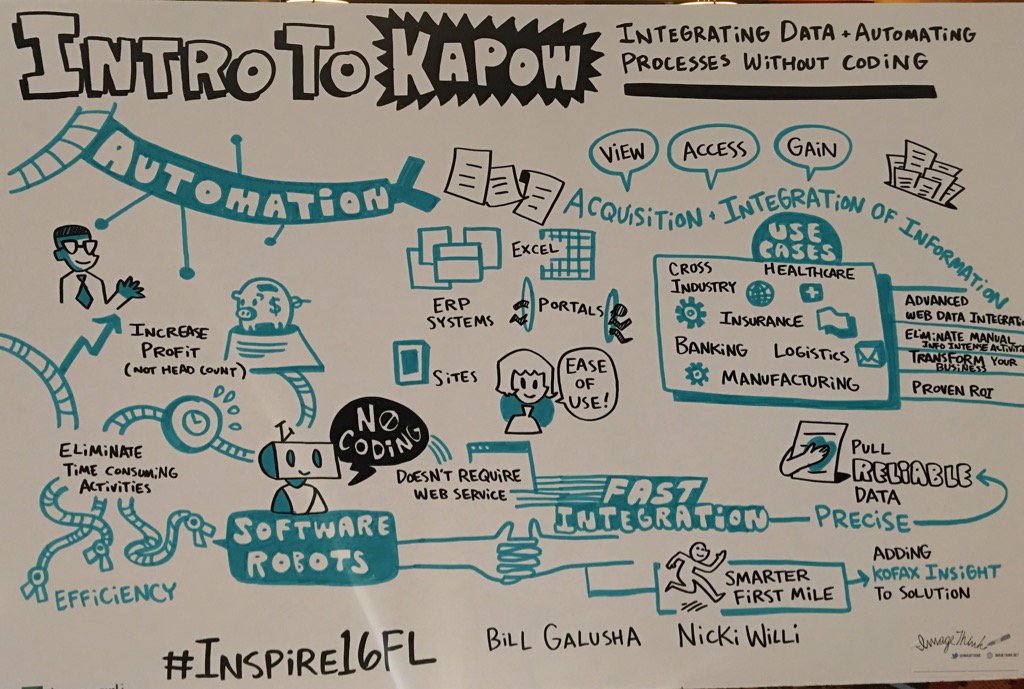 INTRO TO KAPOW
INTEGRATING DATA + AUTOMATING
PROCESSES WITHOUT CODING
AUTOMATION
VIEW
ACCESS
GAIN
ACQUISITION + INTEGRATION OF INFORMATION
INCREASE
PROFIT
(NOT HEAD COUNT)
$
EXCEL
ERP
SYSTEMS
PORTALS
SITES
EASE
OF
USE!
USE
CASES
CROSS
INDUSTRY
HEALTHCARE
INSURANCE
BANKING
LOGISTICS
MANUFACTURING
ADVANCED
WEB DATA INTEGRATI
ELIMINATE MANUAL
INFO INTENSE ACTIVITI
TRANSFORM YOUR
BUSINESS
PROVEN ROI
ELIMINATE
TIME CONSUMING
ACTIVITIES
EFFICIENCY
NO
CODING
SOFTWARE
ROBOTS
DOESN'T REQUIRE
WEB SERVICE
FAST
INTEGRATION
PRECISE
PULL
RELIABLE
DATA
SMARTER
FIRST MILE
ADDING
KOFAX INSIGHT
TO SOLUTION
#INSPIRE16FL
BILL GALUSHA
NICKI WILLI
ImageThink